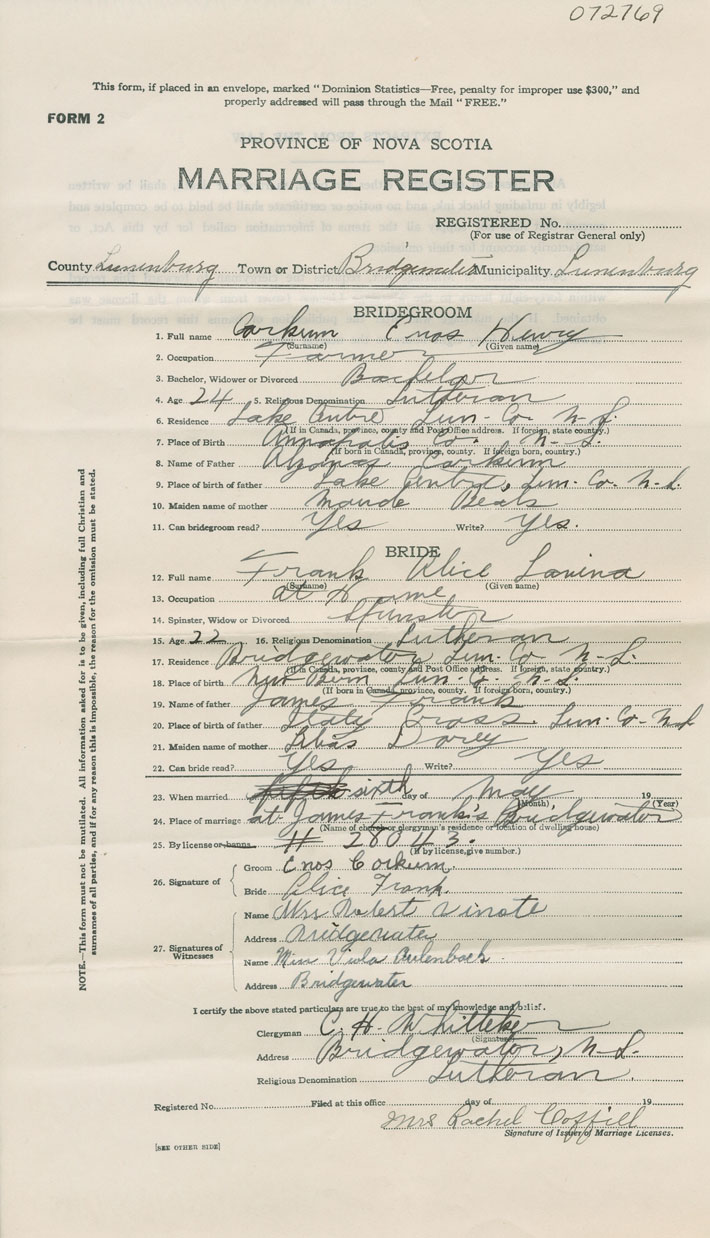 072769
This form, if placed in an envelope, marked "Dominion Statistics—Free, penalty for improper use $300," and
properly addressed will pass through the Mail "FREE."
FORM 2
PROVINCE OF NOVA SCOTIA
MARRIAGE REGISTER
REGISTERED No.
(For use of Registrar General only)
County Lunenburg Town or District Bridgewater Municipality Lunenburg
BRIDEGROOM
1. Full name Corkum Enos Henry
(Surname) (Given name)
2. Occupation Farmer
3. Bachelor, Widower or Divorced Bachelor
4. Age 24 5. Religious Denomination Lutheran
6. Residence Lake Centre Lun. Co. N.S.
(If in Canada, province, county and Post Office address. If foreign, state country.)
7. Place of Birth Annapolis Co. N.S.
(If born in Canada, province, county. If foreign born, country.)
8. Name of Father Corkum
9. Place of birth of father Lake Centre, Lun. Co. N.S.
10. Maiden name of mother Maude Beals
11. Can bridegroom read? Yes Write? Yes.
BRIDE
12. Full name Frank Alice Lavina
(Surname) (Given name)
13. Occupation at Home
14. Spinster, Widow or Divorced Spinster
15. Age 22 16. Religious Denomination Lutheran
17. Residence Bridgewater Lun. Co. N.S.
(If in Canada, province, county and Post Office address. If foreign, state country.)
18. Place of birth New Burn Lun. Co. N.S.
(If born in Canada, province, county. If foreign born, country.)
19. Name of father James Frank
20. Place of birth of father Italy Cross. Lun. Co. N.S.
21. Maiden name of mother Dorey
22. Can bride read? Yes Write? Yes
23. When married fifth sixth day of May 19
(Month) (Year)
24. Place of marriage at James Frank's Bridgewater
(Name of church or clergyman's residence or location of dwelling house)
25. By license or banns # 28043.
(If by license, give number.)
26. Signature of
Groom Enos Corkum
Bride Alice Frank
27. Signatures of Witnesses
Name Mrs Robert Vinote
Address Bridgewater
Name Miss Viola Aulenback
Address Bridgewater
I certify the above stated particulars are true to the best of my knowledge and belief.
Clergyman C. H. Whitteker
(Signature)
Address Bridgewater, N.S.
Religious Denomination Lutheran.
Registered No. Filed at this office day of 19
Mrs Rachel Coffill
Signature of Issuer of Marriage Licenses.
[SEE OTHER SIDE]
NOTE.—This form must not be mutilated. All information asked for is to be given, including full Christian and
surnames of all parties, and if for any reason this is impossible, the reason for the omission must be stated.